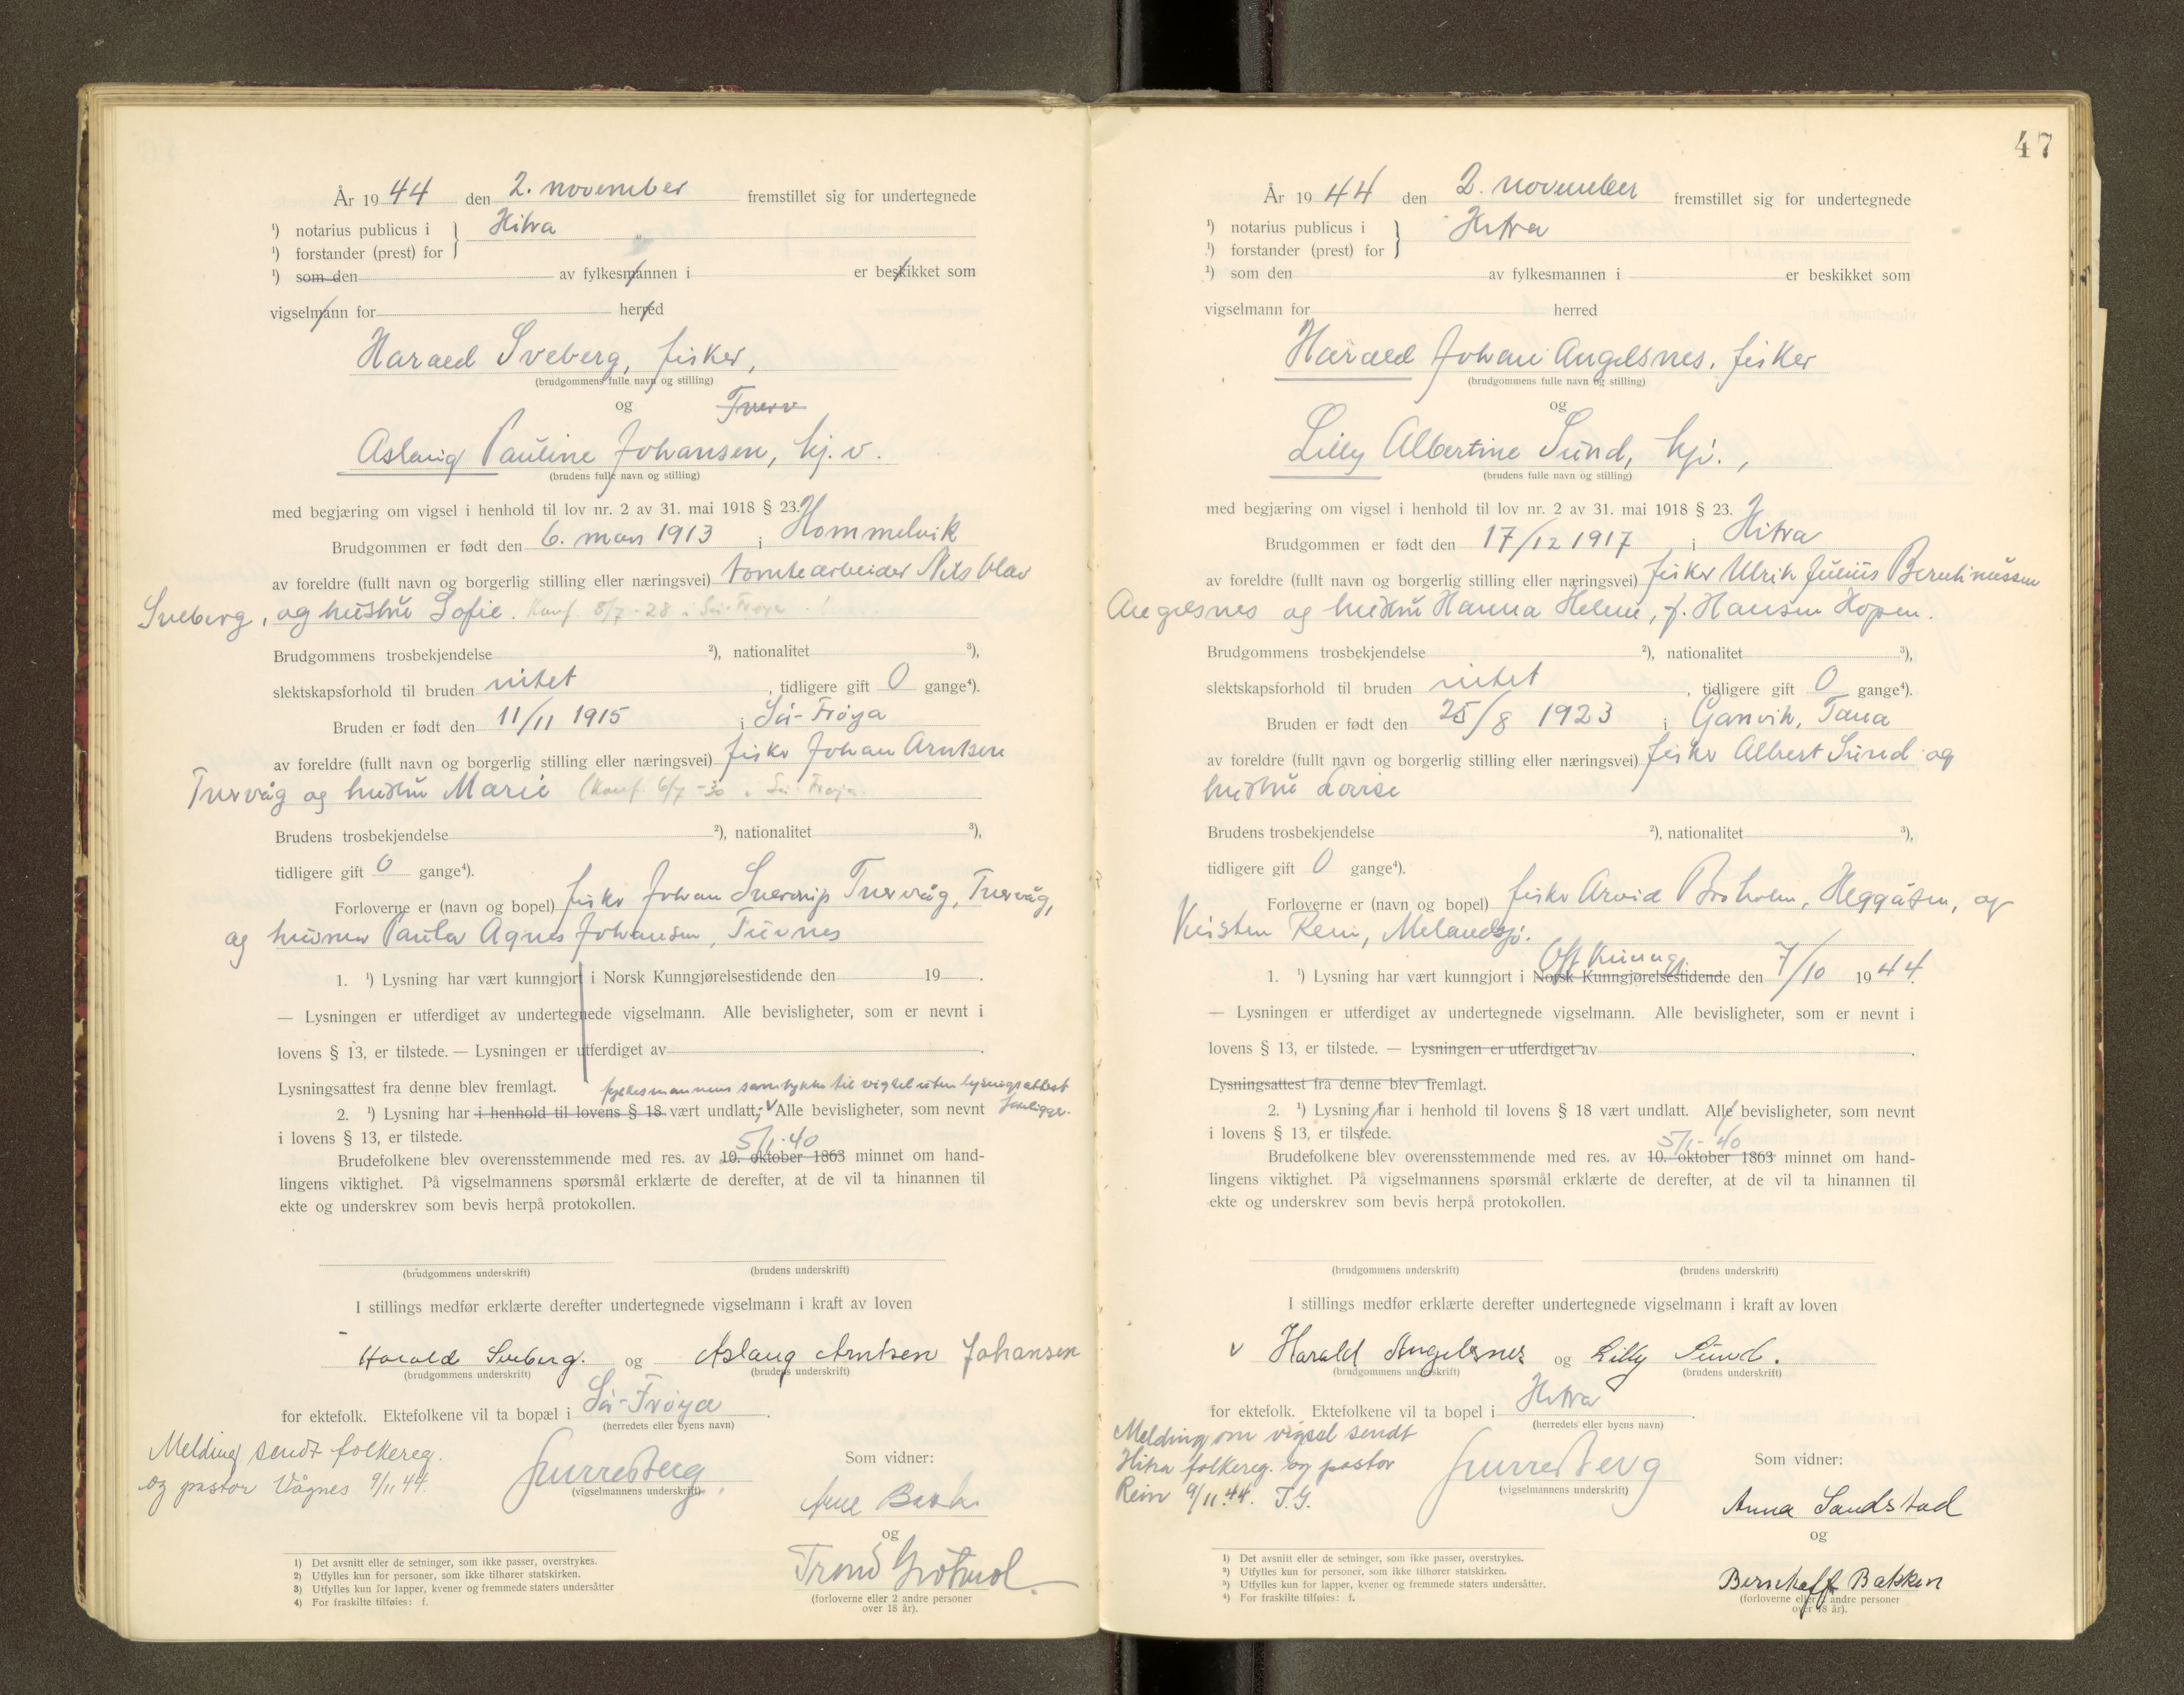 År 1944 den 2. november fremstillet sig for undertegnede
¹) notarius publicus i } Hitra
¹) forstander (prest) for
¹) som den av fylkesmannen i er beskikket som
vigselmann for herred
Harald Sveberg, fisker,
(brudgommens fulle navn og stilling)
og
Aslaug Pauline Johansen, hj. v.
(brudens fulle navn og stilling)
med begjæring om vigsel i henhold til lov nr. 2 av 31. mai 1918 § 23.
Brudgommen er født den 6. mars 1913 i Hommelvik
av foreldre (fullt navn og borgerlig stilling eller næringsvei) tomtearbeider Nils Olav
Sveberg, og hustru Sofie. Konf. 8/7-28 i Sør-Frøya
Brudgommens trosbekjendelse ²), nationalitet ³),
slektskapsforhold til bruden intet, tidligere gift 0 gange⁴).
Bruden er født den 11/11 1915 i Sør-Frøya
av foreldre (fullt navn og borgerlig stilling eller næringsvei) fisker Johan Arntsen
Tuervåg og hustru Marie (Konf. 6/7-30 i Sør-Frøya.
Brudens trosbekjendelse ²), nationalitet ³),
tidligere gift 0 gange⁴).
Forloverne er (navn og bopel) fisker Johan Sverdrup Tuervåg, Tuervåg,
og husmor Paula Agnes Johansen, Tuvnes
1. ¹) Lysning har vært kunngjort i Norsk Kunngjørelsestidende den 19 .
— Lysningen er utferdiget av undertegnede vigselmann. Alle bevisligheter, som er nevnt i
lovens § 13, er tilstede. — Lysningen er utferdiget av .
Lysningsattest fra denne blev fremlagt. fylkesmannens samtykke til vigsel uten lysningsattest
2. ¹) Lysning har i henhold til lovens § 18 vært undlatt, Alle bevisligheter, som nevnt foreligger.
i lovens § 13, er tilstede. 5/1-40
Brudefolkene blev overensstemmende med res. av 10. oktober 1863 minnet om hand-
lingens viktighet. På vigselmannens spørsmål erklærte de derefter, at de vil ta hinannen til
ekte og underskrev som bevis herpå protokollen.
(brudgommens underskrift) (brudens underskrift)
I stillings medfør erklærte derefter undertegnede vigselmann i kraft av loven
Harald Sveberg. og Aslaug Arntsen Johansen
(brudgommens underskrift) (brudens underskrift)
for ektefolk. Ektefolkene vil ta bopæl i Sør-Frøya.
(herredets eller byens navn)
Melding sendt folkereg.
og pastor Vågnes 9/11 44.
(vigselmannens underskrift)
Som vidner:
Arne
og
Trond
(forloverne eller 2 andre personer
over 18 år).
1) Det avsnitt eller de setninger, som ikke passer, overstrykes.
2) Utfylles kun for personer, som ikke tilhører statskirken.
3) Utfylles kun for lapper, kvener og fremmede staters undersåtter
4) For fraskilte tilføies: f.
47
År 1944 den 2. november fremstillet sig for undertegnede
¹) notarius publicus i } Hitra
¹) forstander (prest) for
¹) som den av fylkesmannen i er beskikket som
vigselmann for herred
Harald Johan Angelsnes, fisker
(brudgommens fulle navn og stilling)
og
Lilly Albertine Sund, hj.,
(brudens fulle navn og stilling)
med begjæring om vigsel i henhold til lov nr. 2 av 31. mai 1918 § 23.
Brudgommen er født den 17/12 1917 i Hitra
av foreldre (fullt navn og borgerlig stilling eller næringsvei) fisker Ulrik Julius Berntinussen
Angelsnes og hustru Hanna Helene, f. Hansen Hopen.
Brudgommens trosbekjendelse ²), nationalitet ³),
slektskapsforhold til bruden intet, tidligere gift 0 gange⁴).
Bruden er født den 25/8 1923 i Ganvik, Tana
av foreldre (fullt navn og borgerlig stilling eller næringsvei) fisker Albert Sund og
hustru Lovise
Brudens trosbekjendelse ²), nationalitet ³),
tidligere gift 0 gange⁴).
Forloverne er (navn og bopel) fisker Arvid Broholm, Heggåsen, og
Kristen Rein, Melandsjø.
Off. Kunngj.
1. ¹) Lysning har vært kunngjort i Norsk Kunngjørelsestidende den 7/10 1944.
— Lysningen er utferdiget av undertegnede vigselmann. Alle bevisligheter, som er nevnt i
lovens § 13, er tilstede. — Lysningen er utferdiget av .
Lysningsattest fra denne blev fremlagt.
2. ¹) Lysning har i henhold til lovens § 18 vært undlatt. Alle bevisligheter, som nevnt
i lovens § 13, er tilstede. 5/1-40
Brudefolkene blev overensstemmende med res. av 10. oktober 1863 minnet om hand-
lingens viktighet. På vigselmannens spørsmål erklærte de derefter, at de vil ta hinannen til
ekte og underskrev som bevis herpå protokollen.
(brudgommens underskrift) (brudens underskrift)
I stillings medfør erklærte derefter undertegnede vigselmann i kraft av loven
v Harald Angelsnes og Lilly Sund.
(brudgommens underskrift) (brudens underskrift)
for ektefolk. Ektefolkene vil ta bopel i Hitra.
(herredets eller byens navn)
Melding om vigsel sendt
Hitra folkereg. og pastor
Rein 9/11.44. T.G.
(vigselmannens underskrift)
Som vidner:
Anna Sandstad
og
Bernhoff Bakken
(forloverne eller 2 andre personer
over 18 år).
1) Det avsnitt eller de setninger, som ikke passer, overstrykes.
2) Utfylles kun for personer, som ikke tilhører statskirken.
3) Utfylles kun for lapper, kvener og fremmede staters undersåtter.
4) For fraskilte tilføies: f.